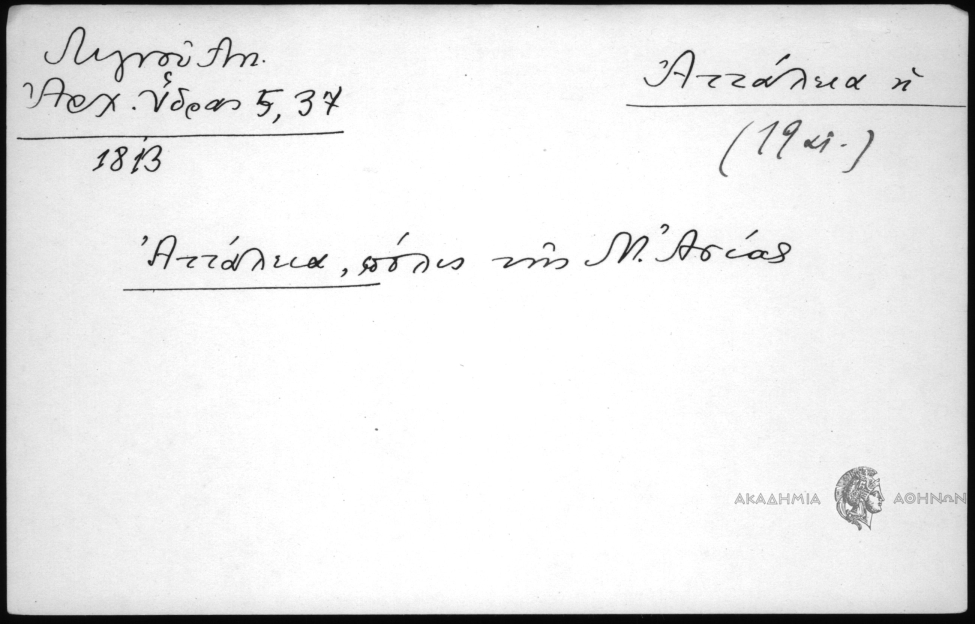 Λιγνοῦ Ἀπ.
Ἀρχ. Ὕδρας 5, 37
1813
Ἀττάλεια ἡ
(19 αἰ.)
Ἀττάλεια, πόλις τῆς Μ. Ἀσίας
ΑΚΑΔΗΜΙΑ ΑΘΗΝΩΝ